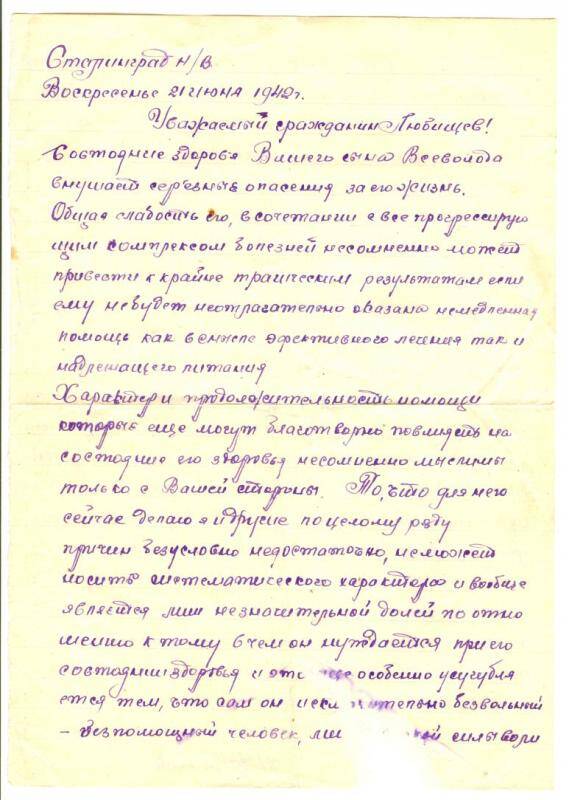 Сталинград н/В
Воскресенье 21 июня 1942 г.
Уважаемый гражданин Любищев!
Состояние здоровья Вашего сына Всеволода
внушает серьезные опасения за его жизнь.
Общая слабость его, в сочетании с все прогрессирую
щим комплексом болезней несомненно может
привести к крайне трагическим результатам если
ему не будет неотлагательно оказана немедленная
помощь как в смысле эфективного лечения так и
надлежащего питания
Характер и продолжительность помощи
которые еще могут благотворно повлиять на
состояние его здоровья несомненно мыслимы
только с Вашей стороны. То, что для него
сейчас делаю я и другие по целому ряду
причин безусловно недостаточно, не может
носить систематического характера и вообще
является лиш незначительной долей по отно
шению к тому в чем он нуждается при его
состоянии здоровья и это еще особенно усугубля
ется тем, что сам он искл ительно безвольный
– беспомощный человек, ли ой силы воли